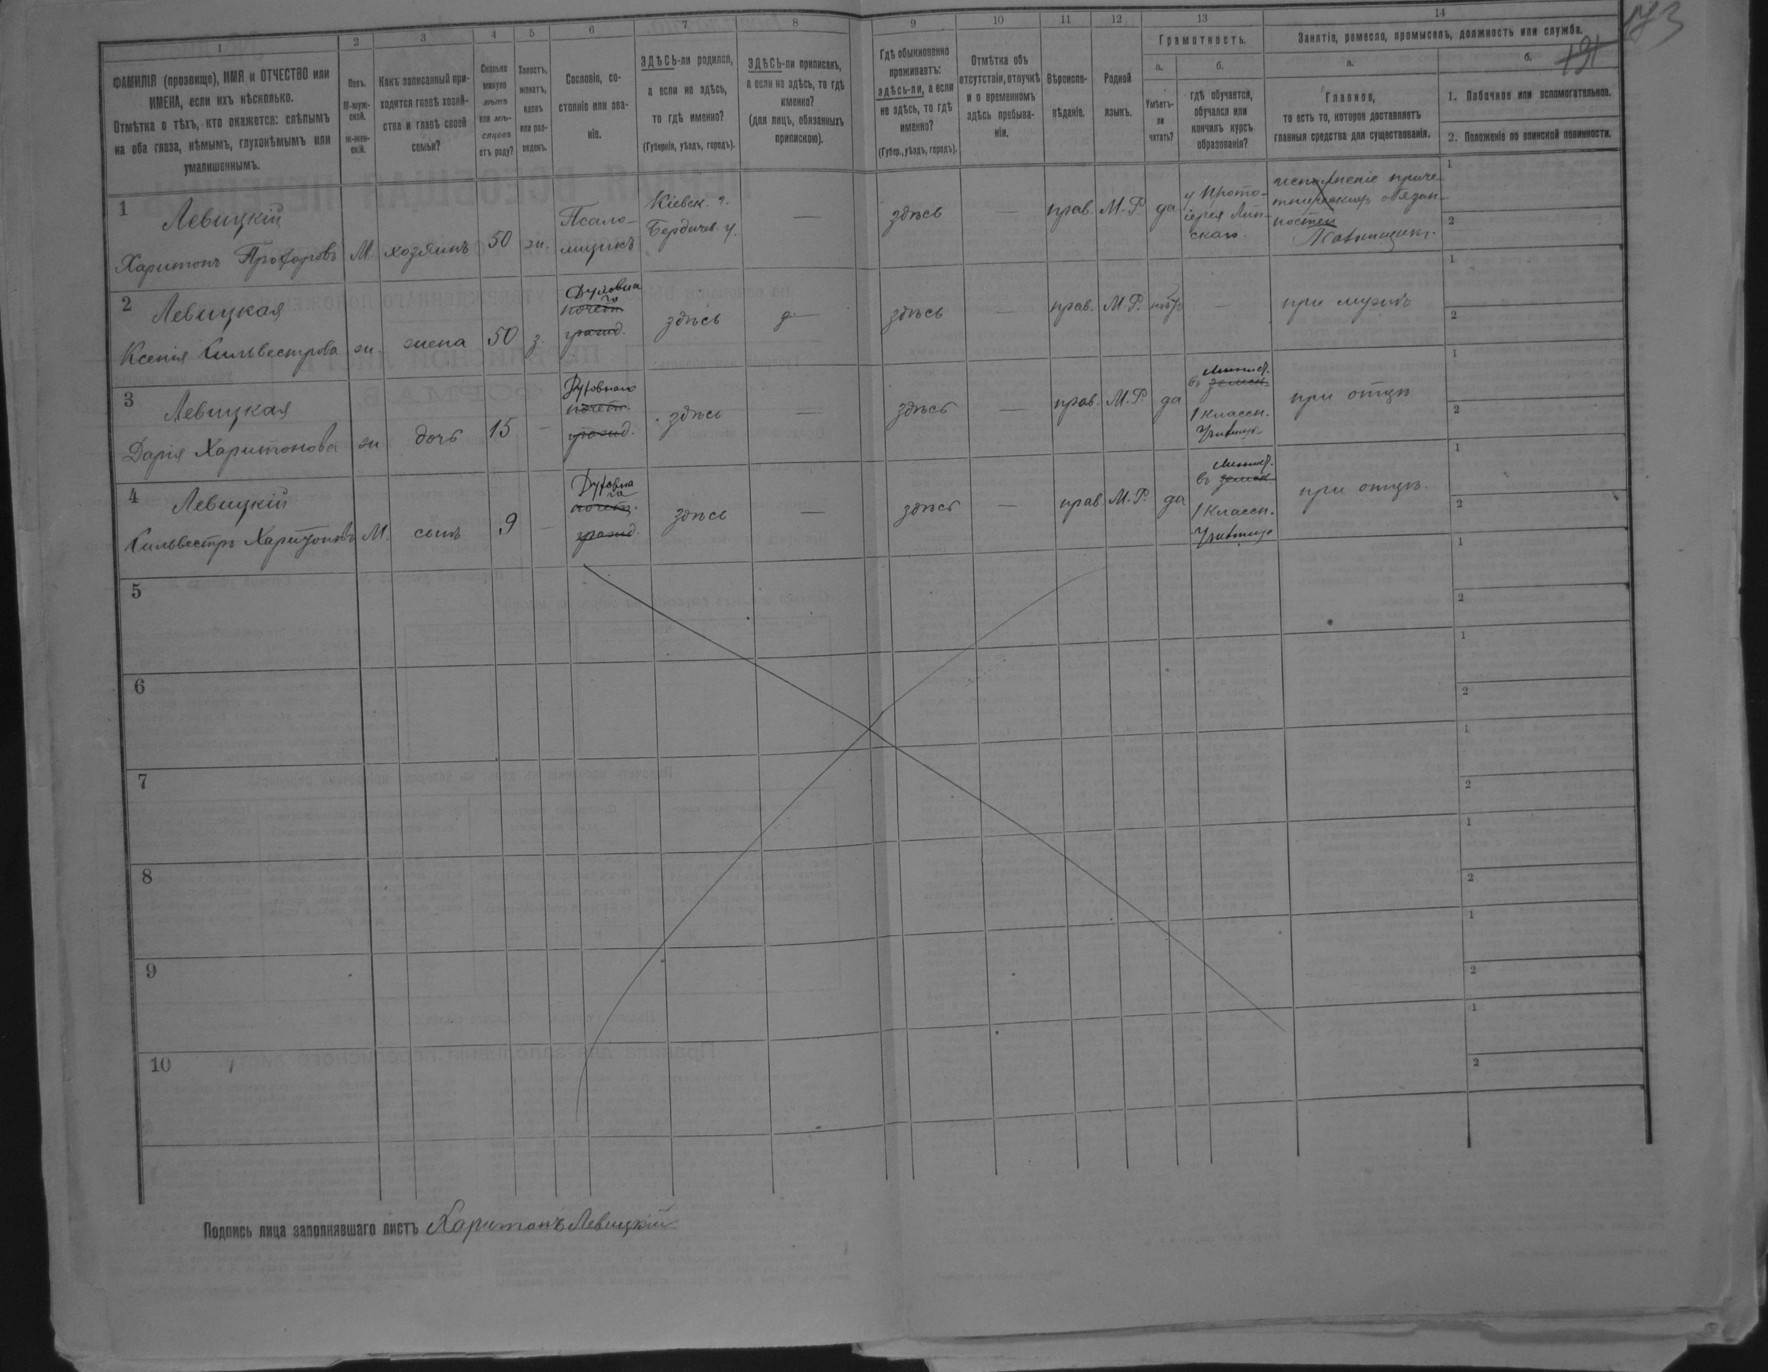 1 2 3 4 5 6 7 8 9 10 11 12 13 14
ФАМИЛІЯ (прозвище), ИМЯ и ОТЧЕСТВО или
ИМЕНА, если ихъ нѣсколько.
Отмѣтка о тѣхъ, кто окажется: слѣпымъ
на оба глаза, нѣмымъ, глухонѣмымъ или
умалишеннымъ.
Полъ.
М-муж-
ской.
Ж-жен-
скій.
Какъ записанный при-
ходится главѣ хозяй-
ства и главѣ своей
семьи?
Сколько
минуло
лѣтъ
или мѣ-
сяцевъ
отъ роду?
Холостъ,
женатъ,
вдовъ
или раз-
веденъ.
Сословіе, со-
стояніе или зва-
ніе.
ЗДѢСЬ-ли родился,
а если не здѣсь,
то гдѣ именно?
(Губернія, уѣздъ, городъ).
ЗДѢСЬ-ли приписанъ,
а если не здѣсь, то гдѣ
именно?
(для лицъ, обязанныхъ
припискою).
Гдѣ обыкновенно
проживаетъ:
здѣсь-ли, а если
не здѣсь, то гдѣ
именно?
(Губер., уѣздъ, городъ).
Отмѣтка объ
отсутствіи, отлучкѣ
и о временномъ
здѣсь пребыва-
ніи.
Вѣроиспо-
вѣданіе.
Родной
языкъ.
Грамотность.
а.
Умѣетъ-
ли
читать?
б.
гдѣ обучается,
обучался или
кончилъ курсъ
образованія?
Занятіе, ремесло, промыселъ, должность или служба.
а.
Главное,
то есть то, которое доставляетъ
главныя средства для существованія.
б.
1. Побочное или вспомогательное.
2. Положеніе по воинской повинности.
1 Левицкій
Харитонъ Прохоровъ М. хозяинъ 50 ж. Псало-
мщикъ
Кіевск. г.
Бердичев. у.
— здѣсь — прав. М.Р. да
у Прото-
іерея Лип-
скаго
исполненіе приче-
тническихъ обязан-
ностей
1
2
2 Левицкая
Ксенія Сильвестрова ж жена 50 з.
Духовна
го
почетн.
гражд.
здѣсь здѣсь — прав. М.Р. нѣтъ — при мужѣ
1
2
3 Левицкая
Дарія Харитонова ж дочь 15 —
Духовнаго
почетн.
гражд.
здѣсь — здѣсь — прав. М.Р. да
въ земск.
1 классн.
Училищѣ
при отцѣ
1
2
4 Левицкій
Сильвестръ Харитоновъ М. сынъ 9 —
Духовна
го
почетн.
гражд.
здѣсь — здѣсь — прав М.Р. да
въ земск
1 классн.
Училищѣ
при отцѣ
1
2
5
1
2
6
1
2
7
1
2
8
1
2
9
1
2
10
1
2
Подпись лица заполнявшаго листъ Харитонъ Левицкій